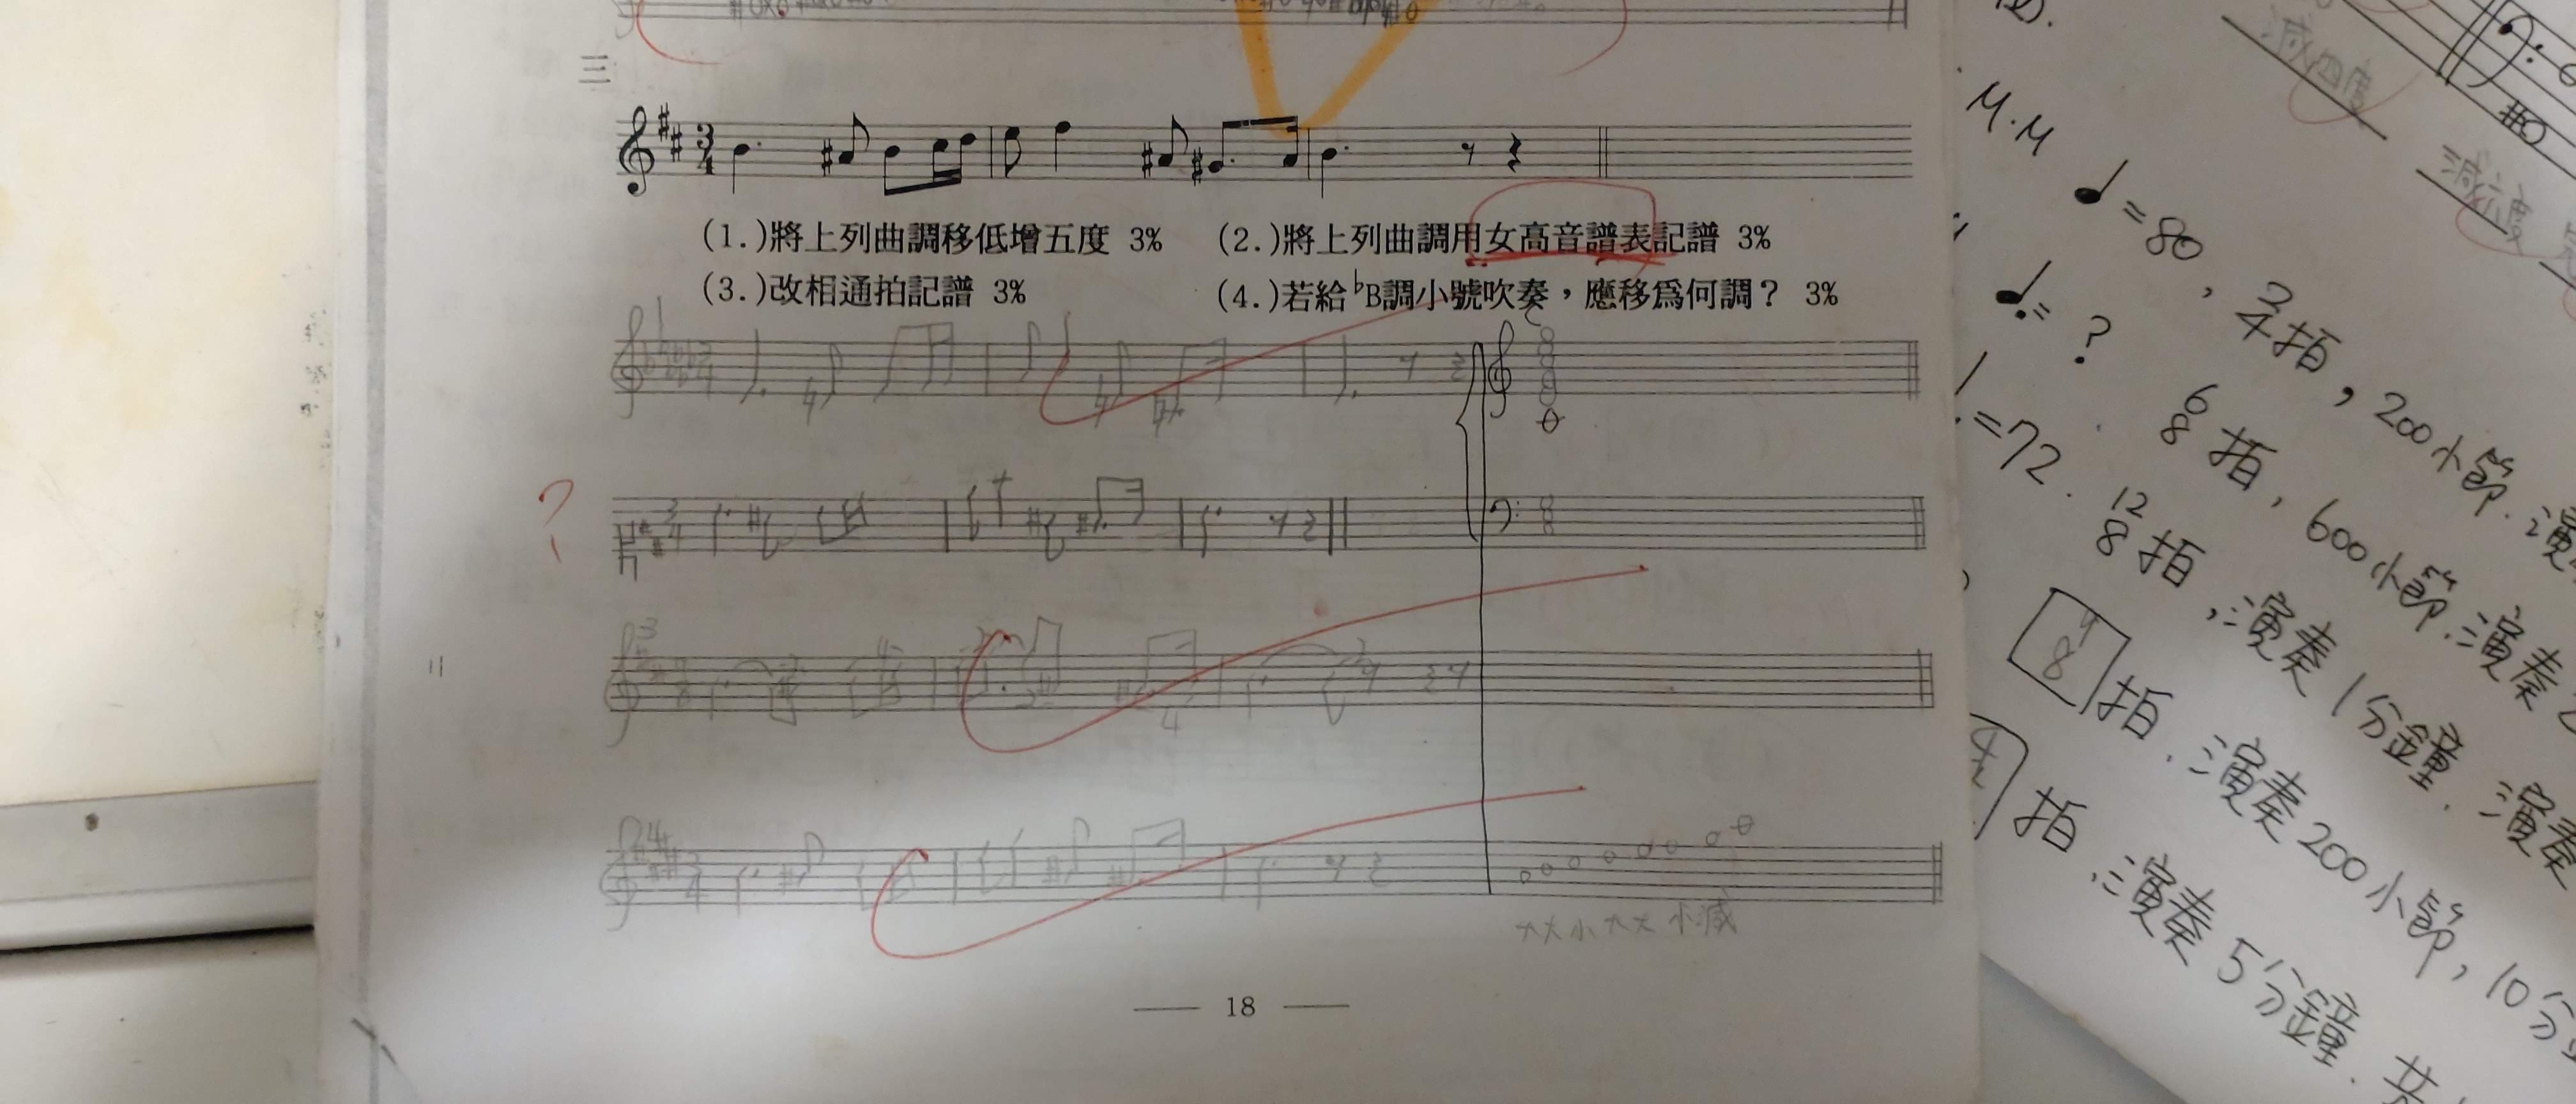 三
3
4
(1.)將上列曲調移低增五度 3% (2.)將上列曲調用女高音譜表記譜 3%
(3.)改相通拍記譜 3% (4.)若給♭B調小號吹奏，應移爲何調？ 3%
1
?
3
4
二
3
4
大大小大大小減
18
減四度
減六度
M.M ♩=80，2/4拍，200小節.演
♩.= ? 6/8拍，600小節.演奏2
=72. 12/8拍，演奏1分鐘.演奏
8拍.演奏200小節，10分
拍.演奏5分鐘.共